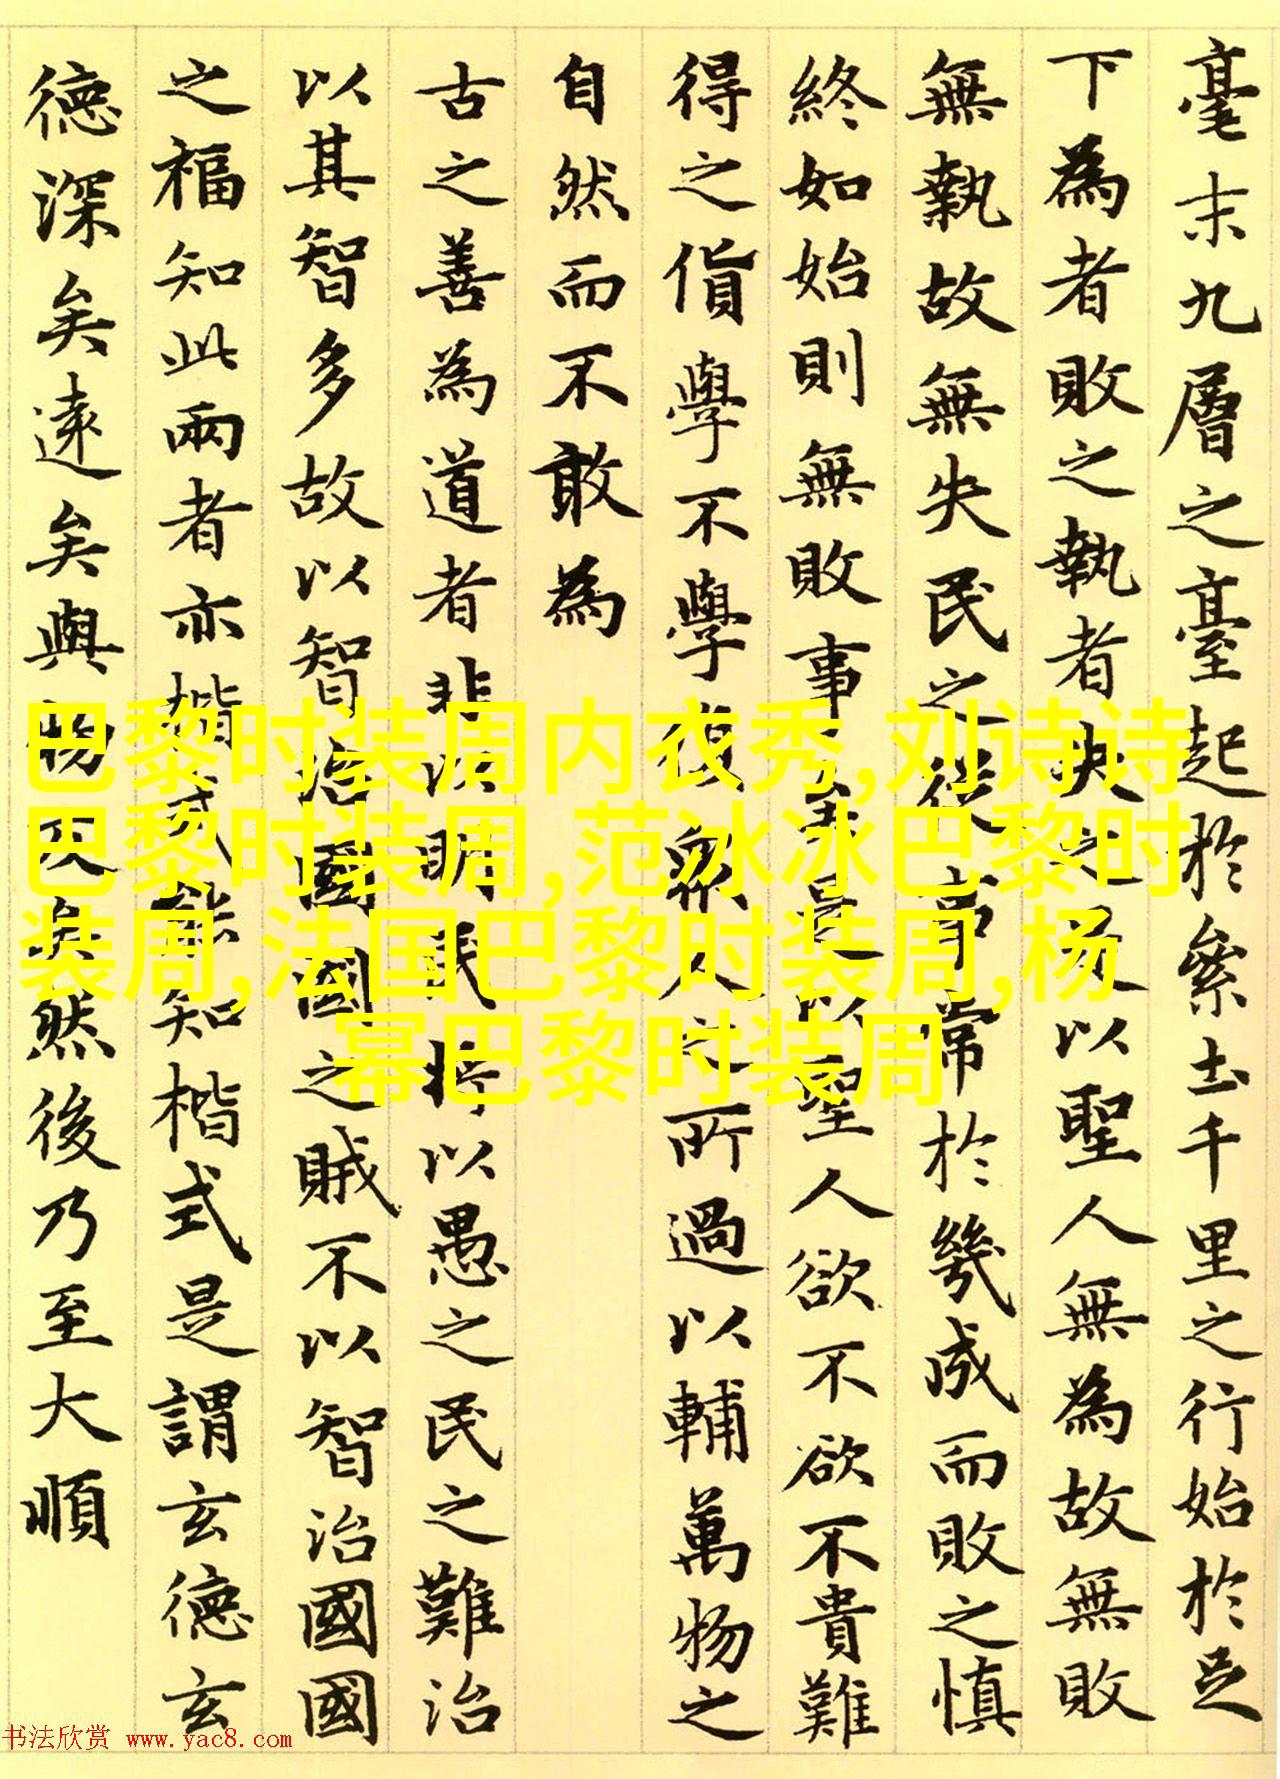 毫末九層之臺起於絫土千里之行始於足
下為者敗之執者失之是以聖人無為故無敗
無執故無失民之從事常於幾成而敗之慎
終如始則無敗事是以聖人欲不欲不貴難
得之貨學不學復眾人之所過以輔萬物之
自然而不敢為
古之善為道者非以明民將以愚之民之難治
以其智多故以智治國國之賊不以智治國國
之福知此兩者亦楷式能知楷式是謂玄德玄
德深矣遠矣與物反矣然後乃至大順
巴黎时装周内衣秀,刘诗诗
巴黎时装周,范冰冰巴黎时
装周,法国巴黎时装周,杨
幂巴黎时装周
书法欣赏 www.yac8.com